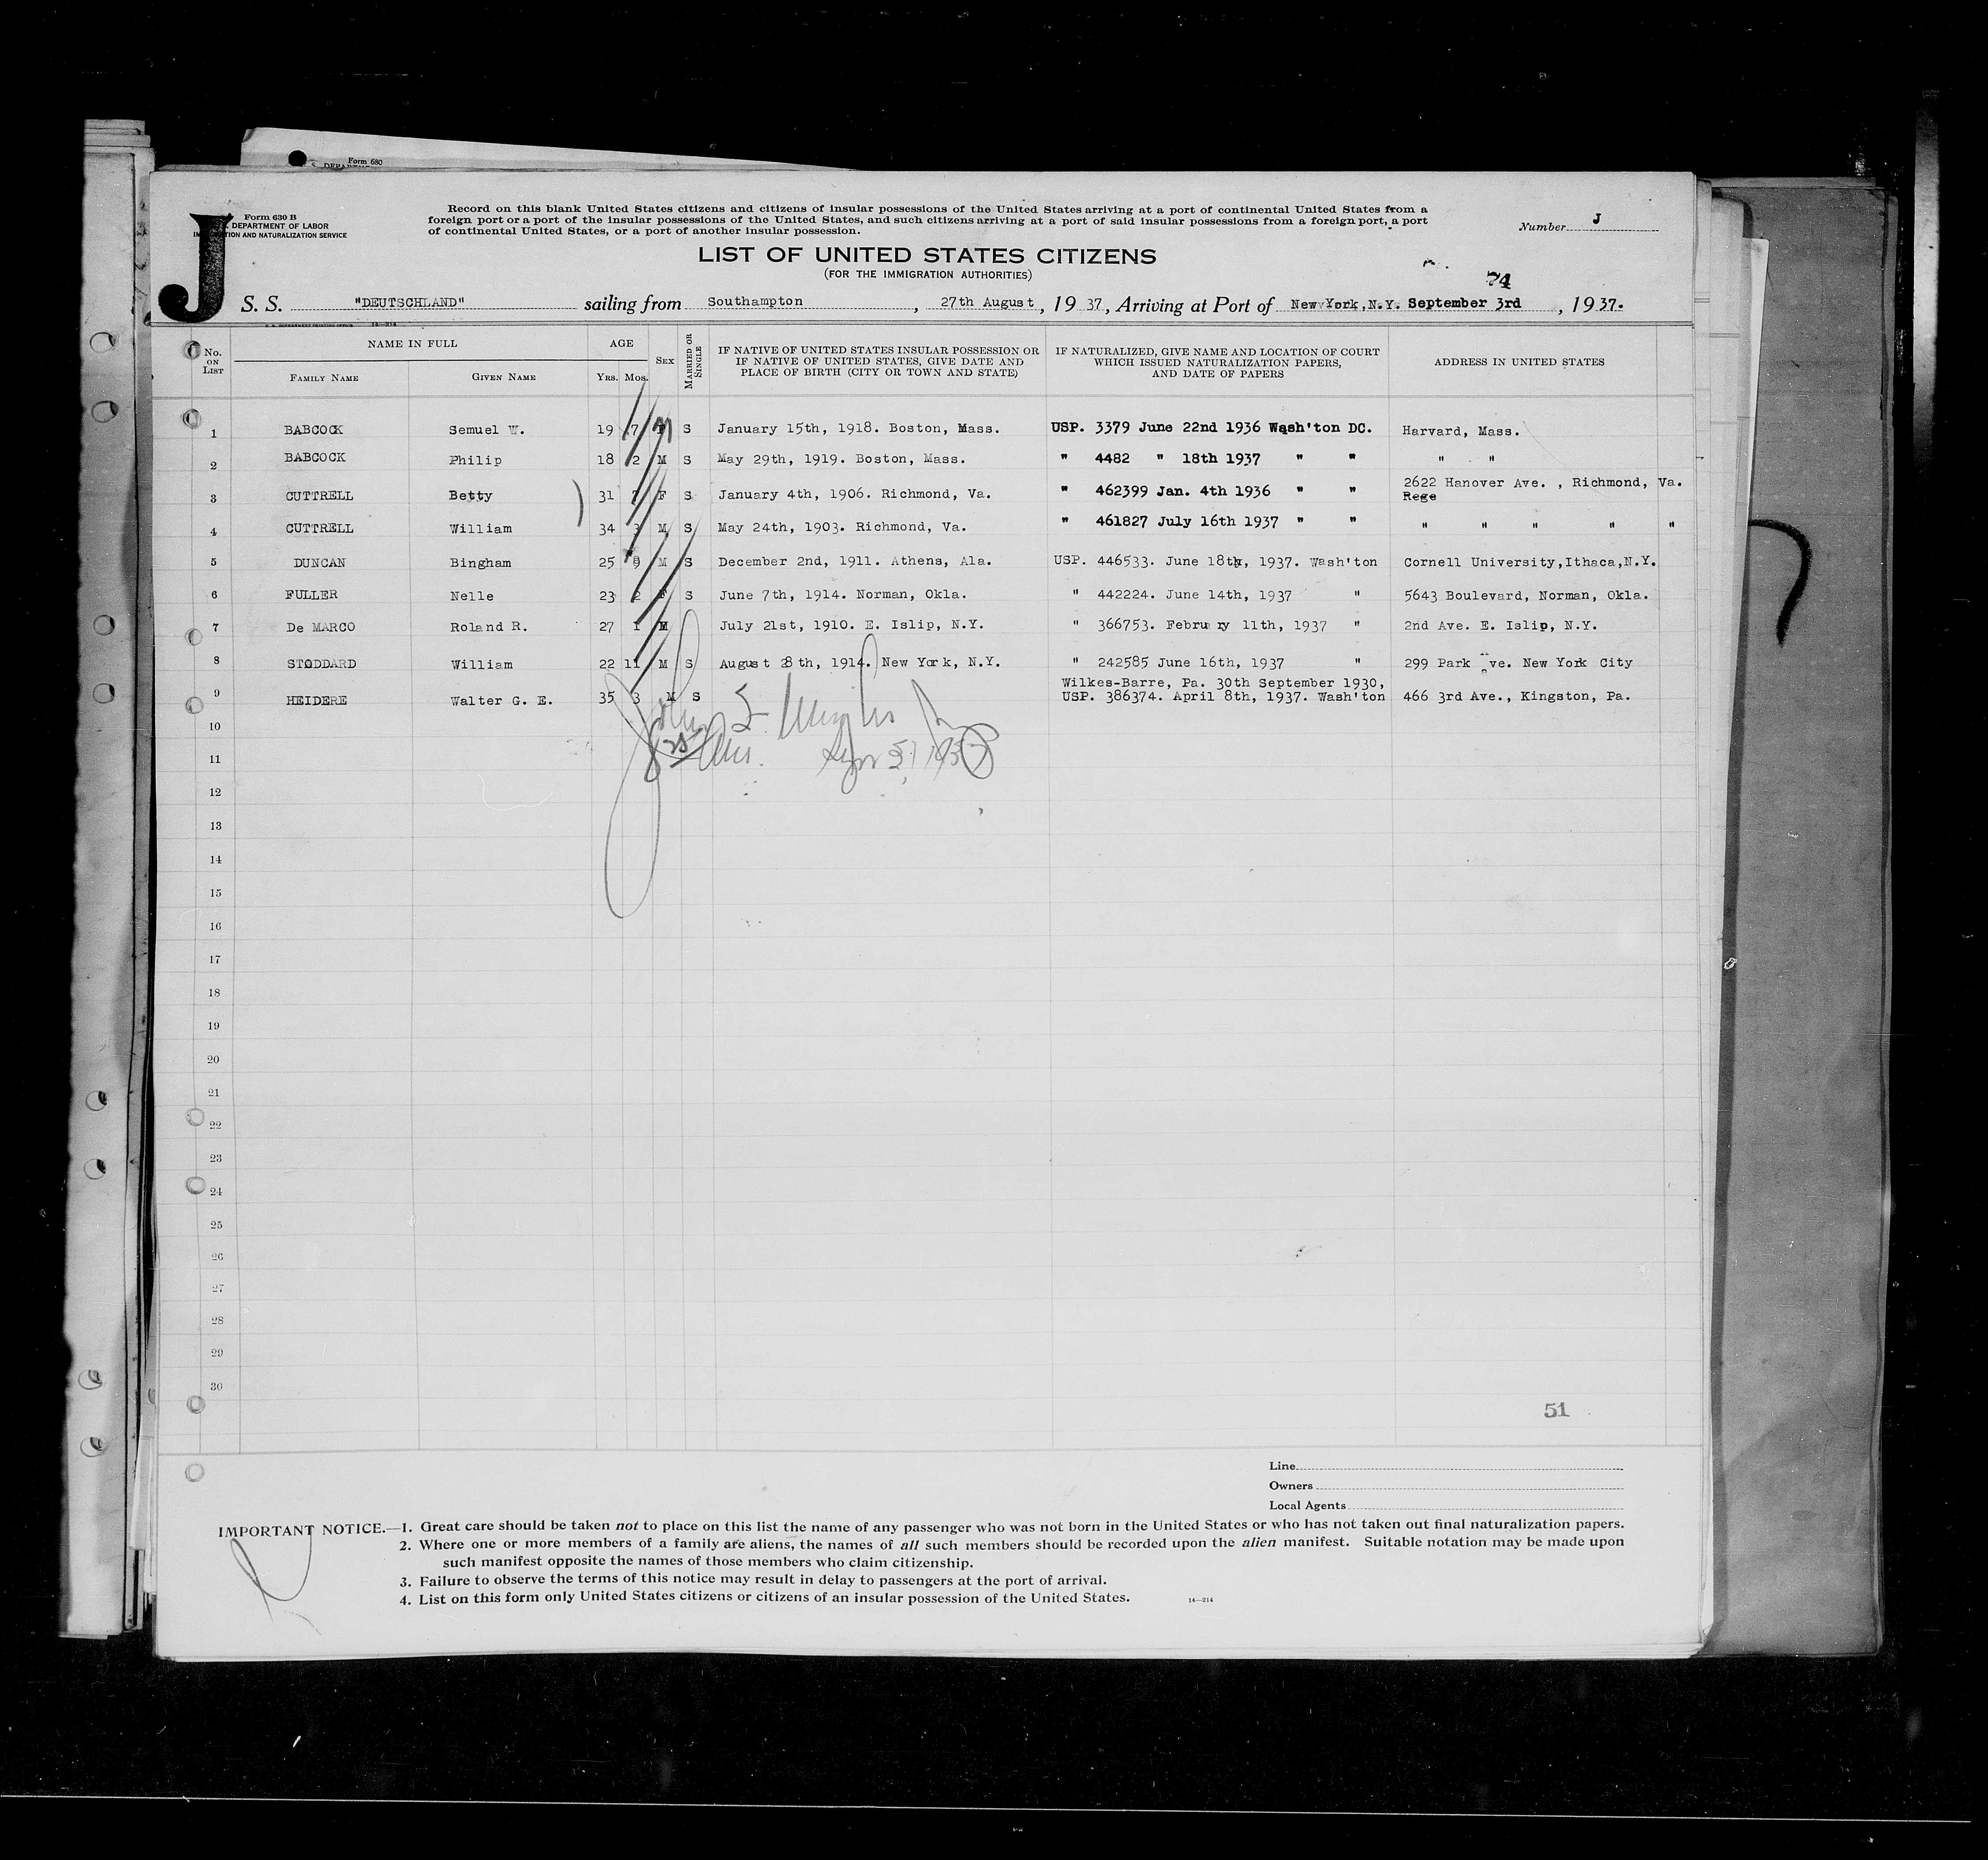 Form 680
S. DEPARTMENT
J
Form 630 B
DEPARTMENT OF LABOR
IMMIGRATION AND NATURALIZATION SERVICE
Record on this blank United States citizens and citizens of insular possessions of the United States arriving at a port of continental United States from a
foreign port or a port of the insular possessions of the United States, and such citizens arriving at a port of said insular possessions from a foreign port, a port
of continental United States, or a port of another insular possession.
Number J
LIST OF UNITED STATES CITIZENS
(FOR THE IMMIGRATION AUTHORITIES)
74
S. S. "DEUTSCHLAND" sailing from Southampton, 27th August, 1937, Arriving at Port of New York, N.Y. September 3rd, 1937.
No. ON LIST NAME IN FULL AGE SEX MARRIED OR SINGLE IF NATIVE OF UNITED STATES INSULAR POSSESSION OR IF NATIVE OF UNITED STATES, GIVE DATE AND PLACE OF BIRTH (CITY OR TOWN AND STATE) IF NATURALIZED, GIVE NAME AND LOCATION OF COURT WHICH ISSUED NATURALIZATION PAPERS, AND DATE OF PAPERS ADDRESS IN UNITED STATES
FAMILY NAME GIVEN NAME YRS. MOS.
1 BABCOCK Semuel W. 19 7 M S January 15th, 1918. Boston, Mass. USP. 3379 June 22nd 1936 Wash'ton DC. Harvard, Mass.
2 BABCOCK Philip 18 2 M S May 29th, 1919. Boston, Mass. " 4482 " 18th 1937 " " " "
3 CUTTRELL Betty 31 7 F S January 4th, 1906. Richmond, Va. " 462399 Jan. 4th 1936 " " 2622 Hanover Ave. , Richmond, Va.
Rege
4 CUTTRELL William 34 3 M S May 24th, 1903. Richmond, Va. " 461827 July 16th 1937 " " " " " " "
5 DUNCAN Bingham 25 9 M S December 2nd, 1911. Athens, Ala. USP. 446533. June 18th, 1937. Wash'ton Cornell University,Ithaca,N.Y.
6 FULLER Nelle 23 2 F S June 7th, 1914. Norman, Okla. " 442224. June 14th, 1937 " 5643 Boulevard, Norman, Okla.
7 De MARCO Roland R. 27 1 M July 21st, 1910. E. Islip, N.Y. " 366753. Februa ry 11th, 1937 " 2nd Ave. E. Islip, N.Y.
8 STODDARD William 22 11 M S August 28th, 1914. New York, N.Y. " 242585 June 16th, 1937 " 299 Park Ave. New York City
Wilkes-Barre, Pa. 30th September 1930,
9 HEIDERE Walter G. E. 35 3 M S USP. 386374. April 8th, 1937. Wash'ton 466 3rd Ave., Kingston, Pa.
10
11
12
13
14
15
16
17
18
19
20
21
22
23
24
25
26
27
28
29
30
51
Line
Owners
Local Agents
IMPORTANT NOTICE.—1. Great care should be taken not to place on this list the name of any passenger who was not born in the United States or who has not taken out final naturalization papers.
2. Where one or more members of a family are aliens, the names of all such members should be recorded upon the alien manifest. Suitable notation may be made upon
such manifest opposite the names of those members who claim citizenship.
3. Failure to observe the terms of this notice may result in delay to passengers at the port of arrival.
4. List on this form only United States citizens or citizens of an insular possession of the United States.
14—214